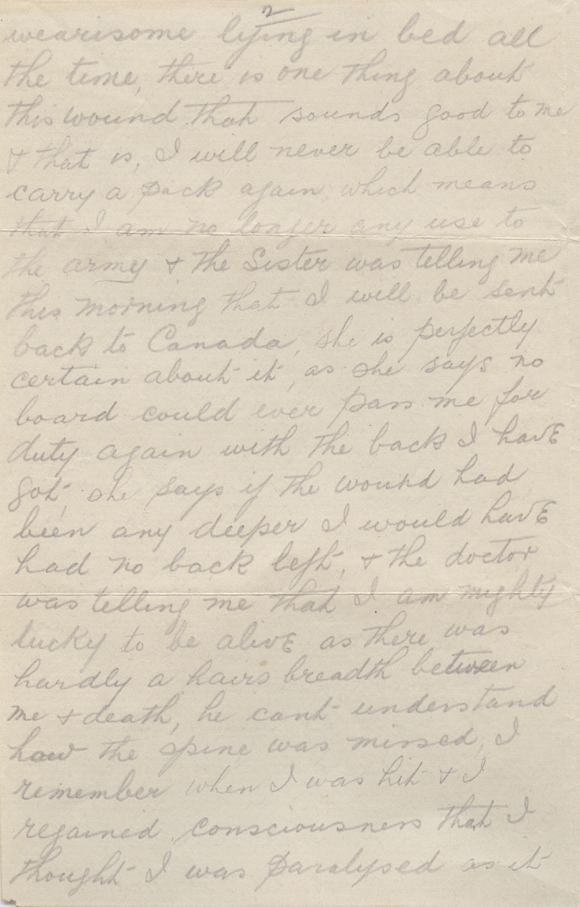 2
wearisome lying in bed all
the time, there is one thing about
this wound that sounds good to me
& that is, I will never be able to
carry a pack again which means
that I am no longer any use to
the army & the Sister was telling me
this morning that I will be sent
back to Canada, she is perfectly
certain about it, as she says no
board could ever pass me for
duty again with the back I have
got, she says if the wound had
been any deeper I would have
had no back left, & the doctor
was telling me that I am mighty
lucky to be alive as there was
hardly a hairs breadth between
me & death, he cant understand
how the spine was missed, I
remember when I was hit & I
regained consciousness that I
thought I was paralysed as it